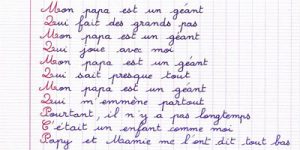 Mon papa est un géant
Qui fait des grands pas
Mon papa est un géant
Qui joue avec moi
Mon papa est un géant
Qui sait presque tout
Mon papa est un géant
Qui m'emmène partout
Pourtant, il n'y a pas longtemps
C'était un enfant comme moi
Papy et Mamie me l'ont dit tout bas